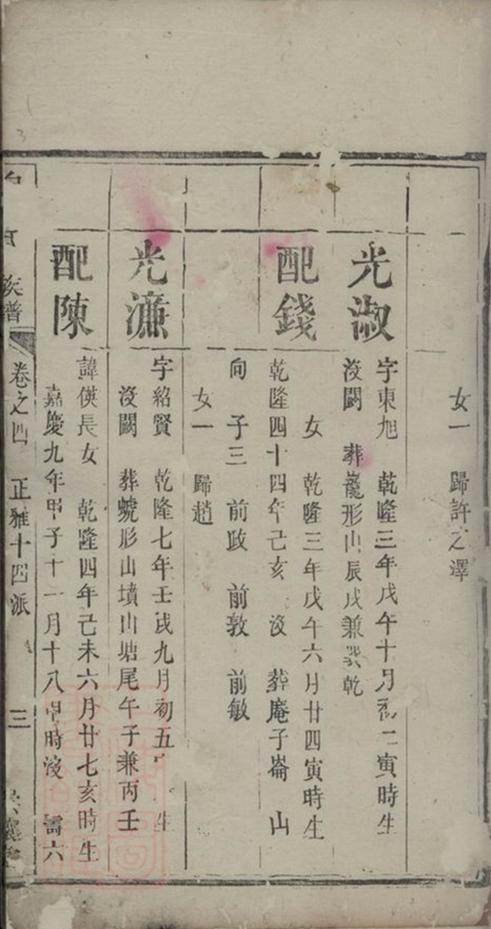 女一 歸許之澤
光淑
字東旭 乾隆三年戊午十月初二寅時生
沒闕 葬龍形山辰戌兼巽乾
配錢
女 乾隆三年戊午六月廿四寅時生
乾隆四十四年己亥 沒 葬庵子崙 山
向 子三 前政 前敦 前敏
女一 歸趙
光濂
字紹賢 乾隆七年壬戌九月初五 生
沒闕 葬蛻形山墳山塘尾午子兼丙壬
配陳
諱俠長女 乾隆四年己未六月廿七亥時生
嘉慶九年甲子十一月十八申時沒 壽六
族譜 卷之四 正雅十四派 三